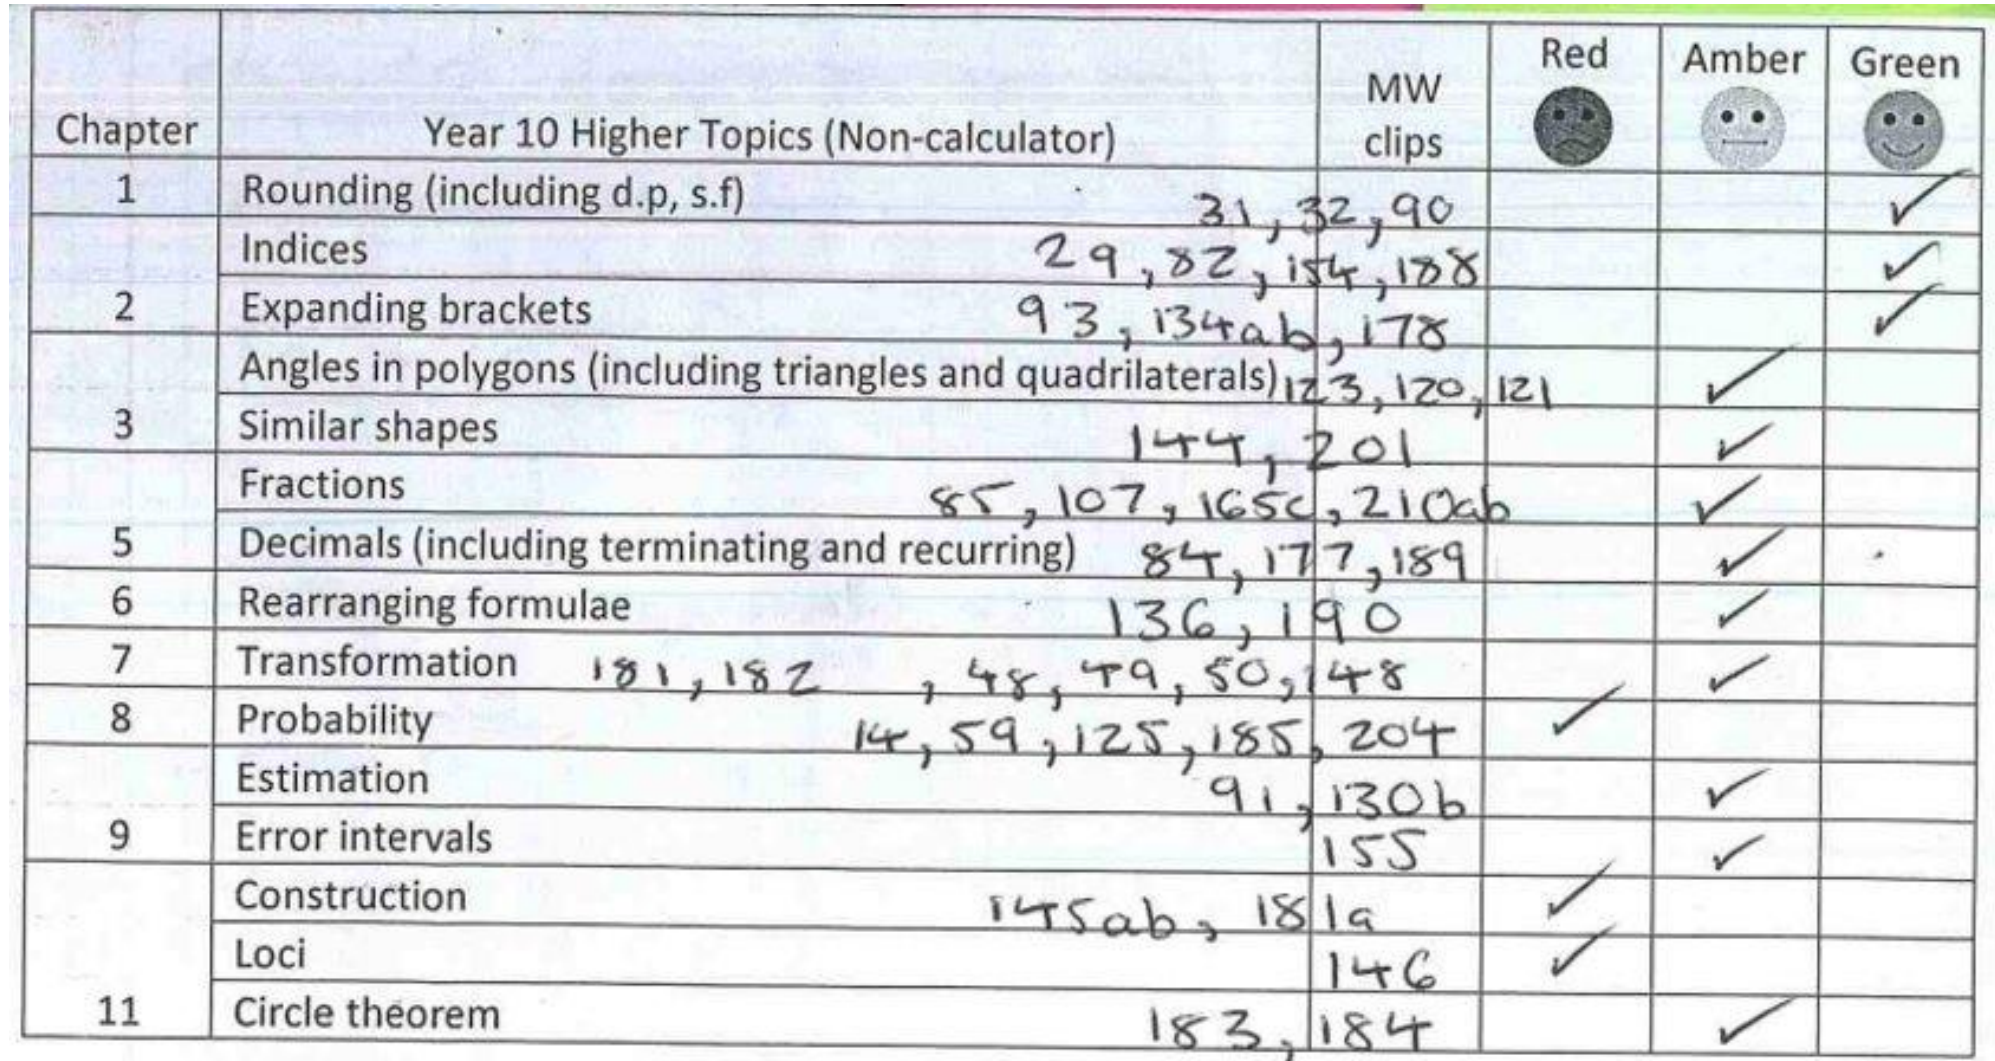 Chapter Year 10 Higher Topics (Non-calculator) MW clips Red Amber Green
1 Rounding (including d.p, s.f) 31, 32, 90 ✓
Indices 29, 82, 154, 188 ✓
2 Expanding brackets 93, 134ab, 178 ✓
Angles in polygons (including triangles and quadrilaterals) 123, 120, 121 ✓
3 Similar shapes 144, 201 ✓
Fractions 85, 107, 165c, 210ab ✓
5 Decimals (including terminating and recurring) 84, 177, 189 ✓
6 Rearranging formulae 136, 190 ✓
7 Transformation 181, 182 , 48, 49, 50, 148 ✓
8 Probability 14, 59, 125, 185, 204 ✓
Estimation 91, 130b ✓
9 Error intervals 155 ✓
Construction 145ab, 181a ✓
Loci 146 ✓
11 Circle theorem 183, 184 ✓